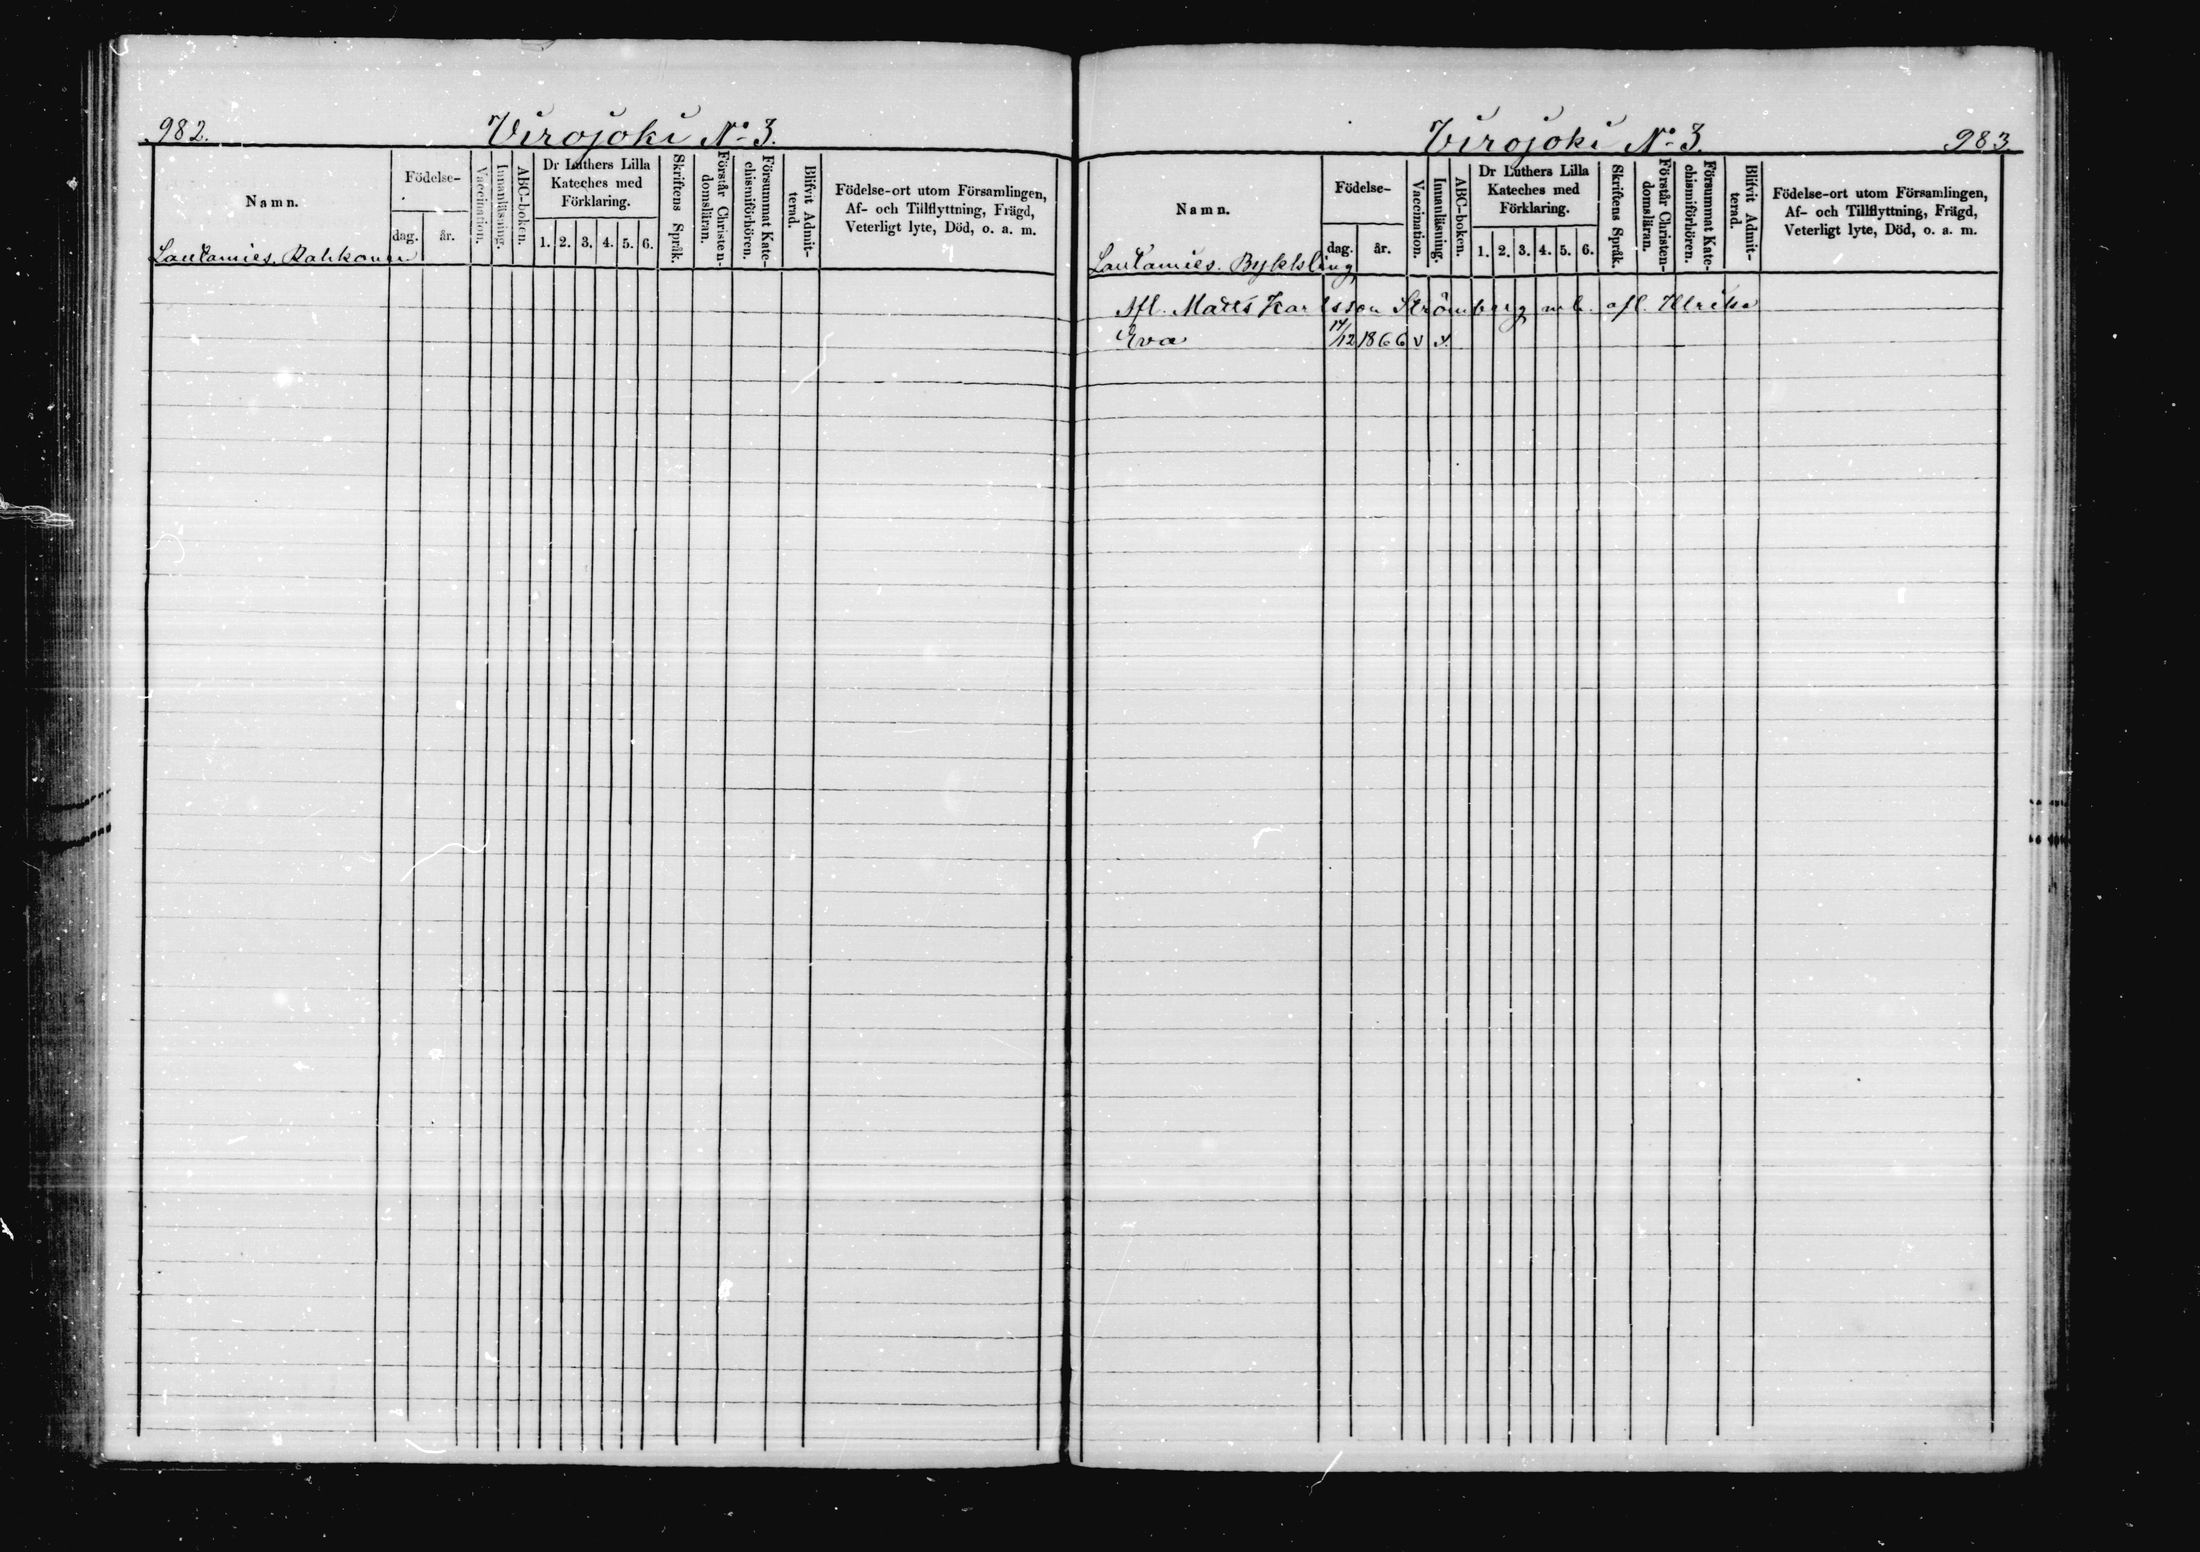 982.
Virojoki No 3.
Namn.
Födelse-
dag.
år.
Vaccination.
Innanläsning.
ABC-boken.
Dr Luthers Lilla
Kateches med
Förklaring.
1. 2. 3. 4. 5. 6.
Skriftens Språk.
Förstår Christen-
domsläran.
Försummat Kate-
chismiförhören.
Blifvit Admit-
terad.
Födelse-ort utom Församlingen,
Af- och Tillflyttning, Frägd,
Veterligt lyte, Död, o. a. m.
Lautamies. Rahkonen
Virojoki No 3.
983.
Namn.
Födelse-
dag.
år.
Vaccination.
Innanläsning.
ABC-boken.
Dr Luthers Lilla
Kateches med
Förklaring.
1. 2. 3. 4. 5. 6.
Skriftens Språk.
Förstår Christen-
domsläran.
Försummat Kate-
chismiförhören.
Blifvit Admit-
terad.
Födelse-ort utom Församlingen,
Af- och Tillflyttning, Frägd,
Veterligt lyte, Död, o. a. m.
Lautamies.
Afl. Matts Karlsson Strömberg m. afl. Ulrika
Eva 17/12 1866 v v.